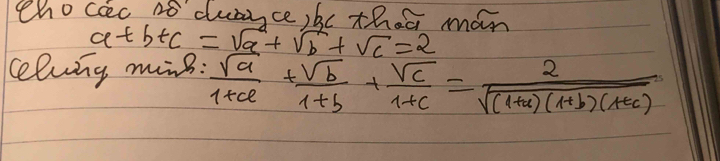 Cho các số dương a, b, c thoã mãn
a+b+c = √a + √b + √c = 2
Chứng minh: √a/(1+a) + √b/(1+b) + √c/(1+c) = 2/√((1+a)(1+b)(1+c))